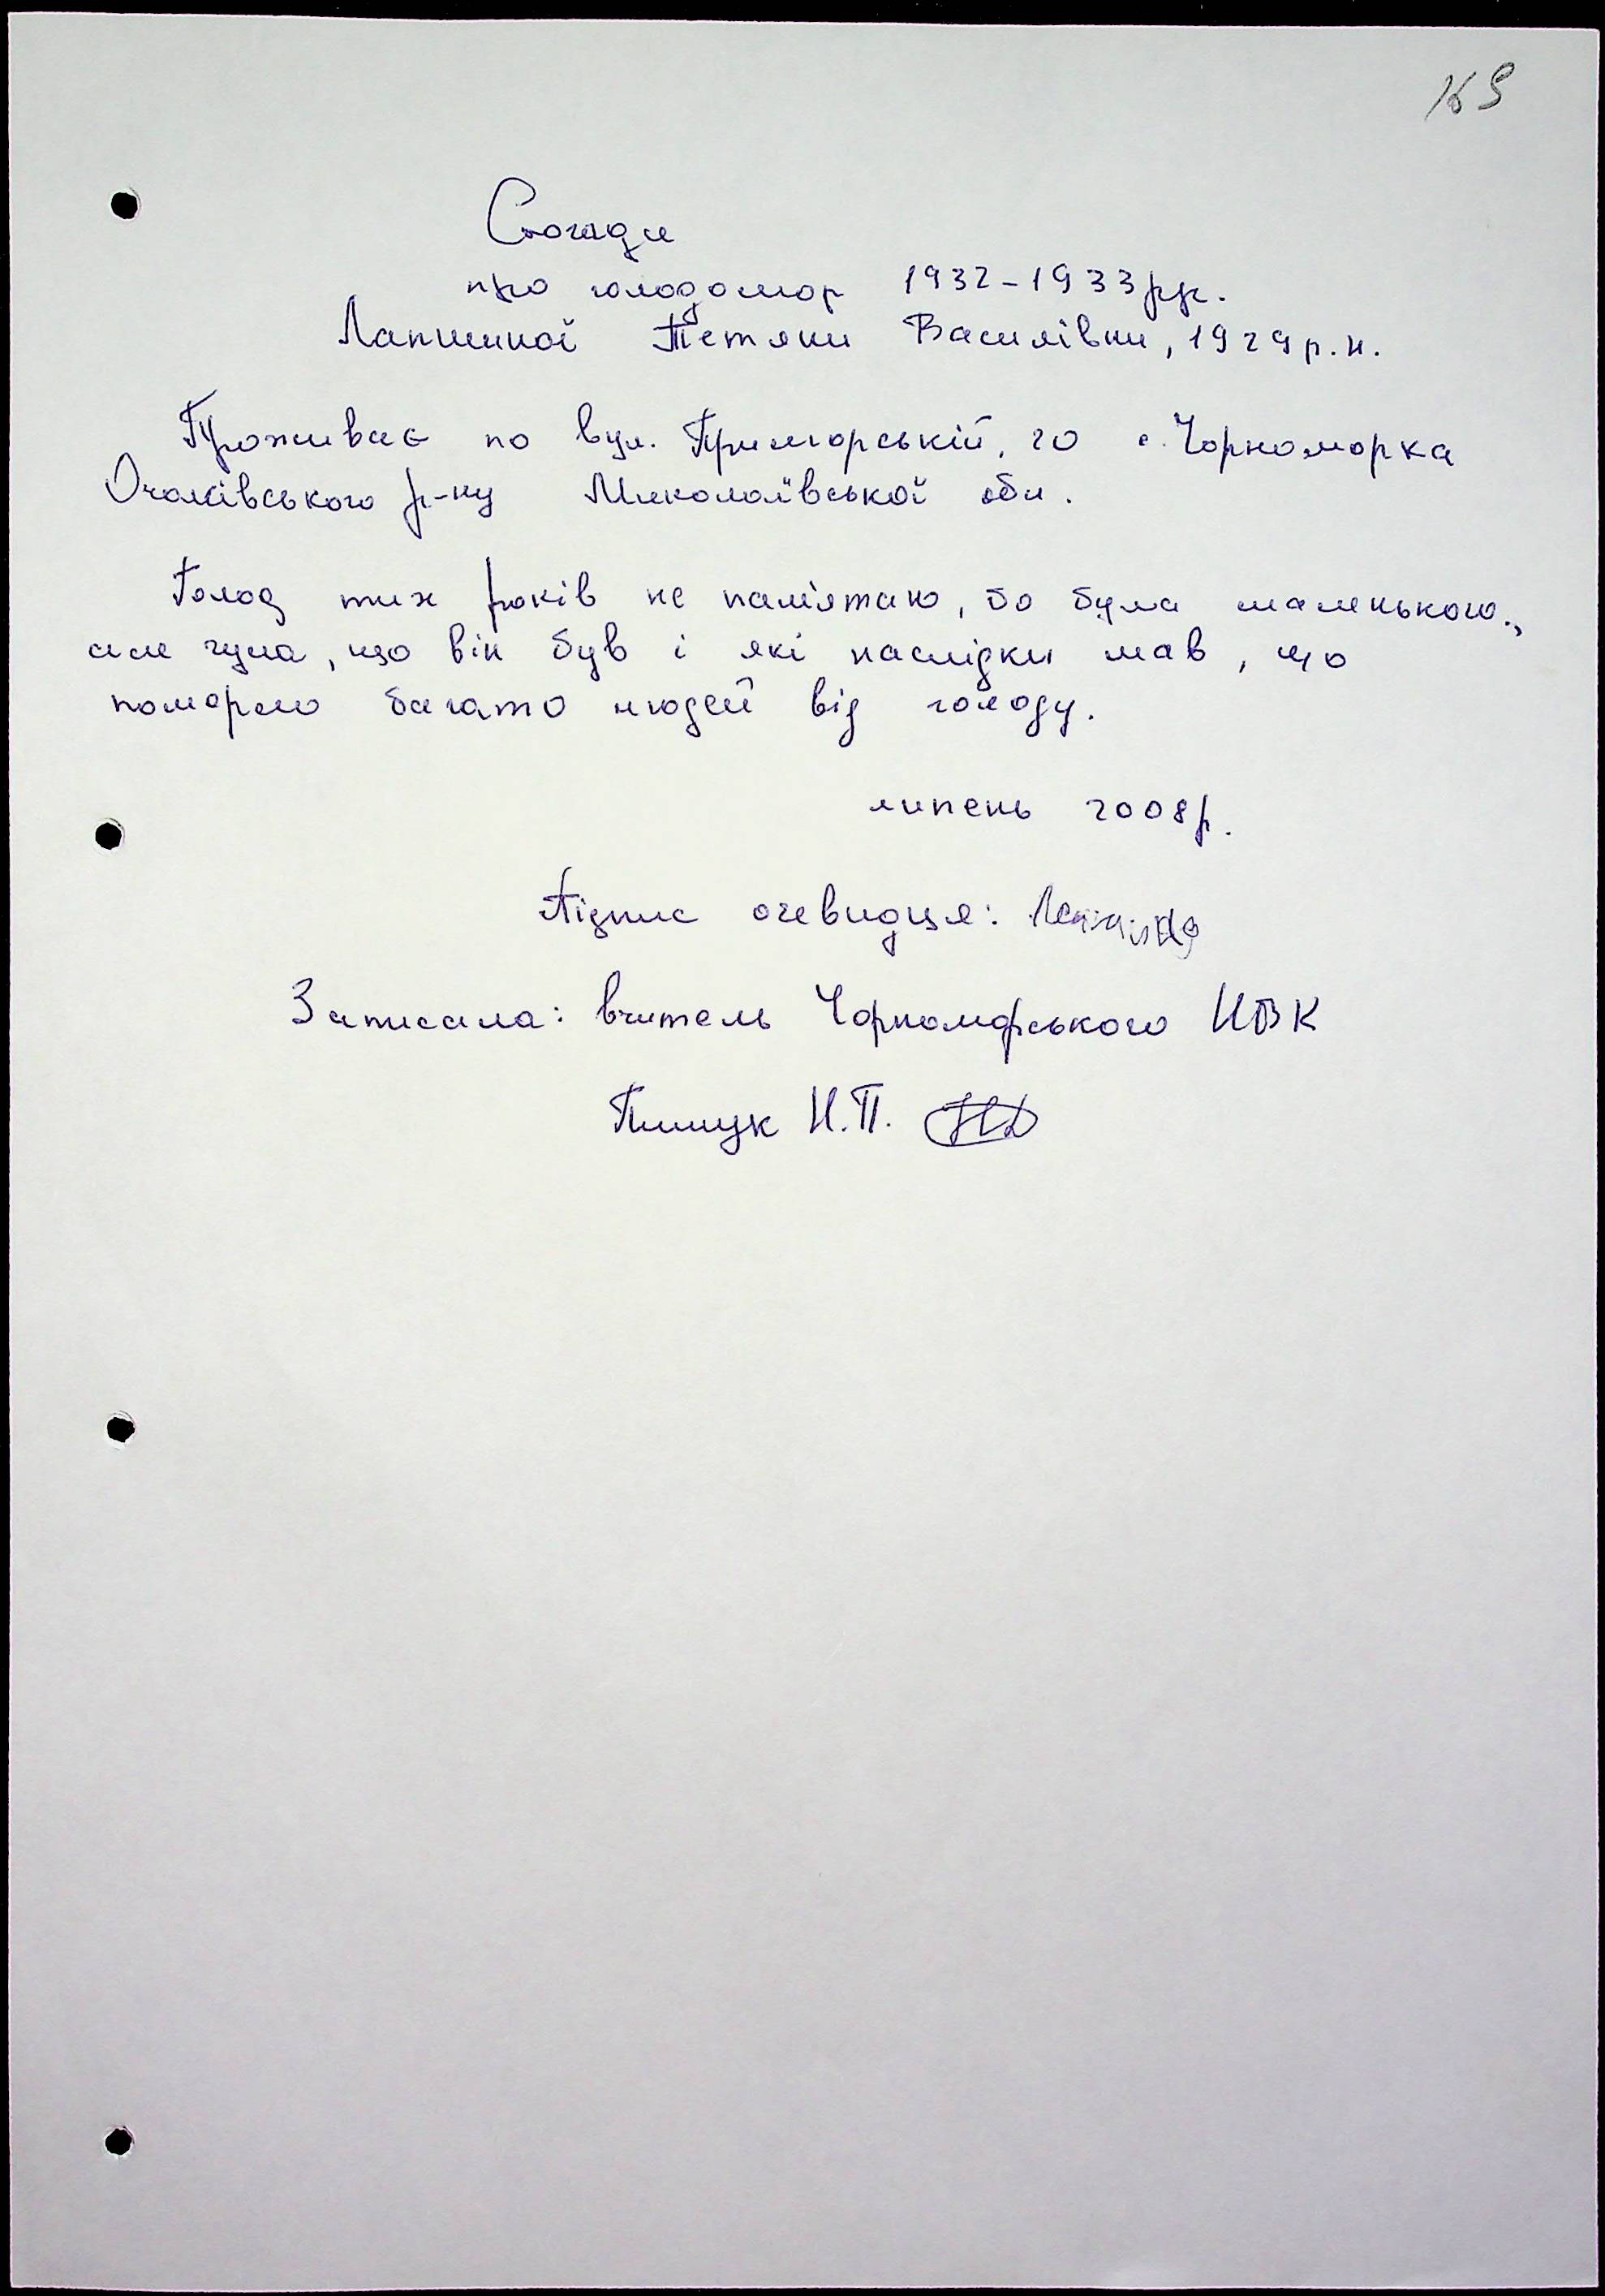 169
Спогади
про голодомор 1932-1933 рр.
Лапшиної Тетяни Василівни, 1929 р.н.
Проживає по вул. Приморській, 20 с. Чорноморка
Очаківського р-ну Миколаївської обл.
Голод тих років не пам'ятаю, бо була маленькою.,
але чула, що він був і які наслідки мав, що
померло багато людей від голоду.
липень 2008р.
Підпис очевидця:
Записала: вчитель Чорноморського НВК
Пишук Н.П.